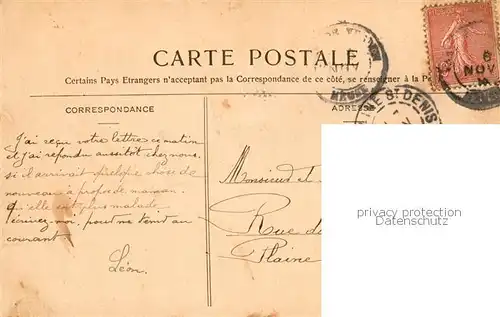 CARTE POSTALE
Certains Pays Etrangers n'acceptant pas la Correspondance de ce côté, se renseigner à la Po
CORRESPONDANCE
ADRESSE
J'ai reçu votre lettre ce matin
et j'ai répondu aussitôt chez nous.
si il arrivait quelque chose de
nouveau à propos de maman.
qu'elle est plus malade
écrivez-moi, pour me tenir au
courant.
Léon.
Monsieur et
Rue de
Plaine
PLAINE ST DENIS
6
NOV
privacy protection
watermark
(Adressdaten)